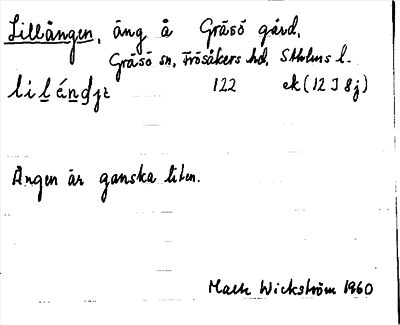 Lillängen, äng å Gräsö gård,
Gräsö sn, Frösåkers hd, Sthlms l.
122 ek (12 J 8j)
Ängen är ganska liten.
Wickström 1960